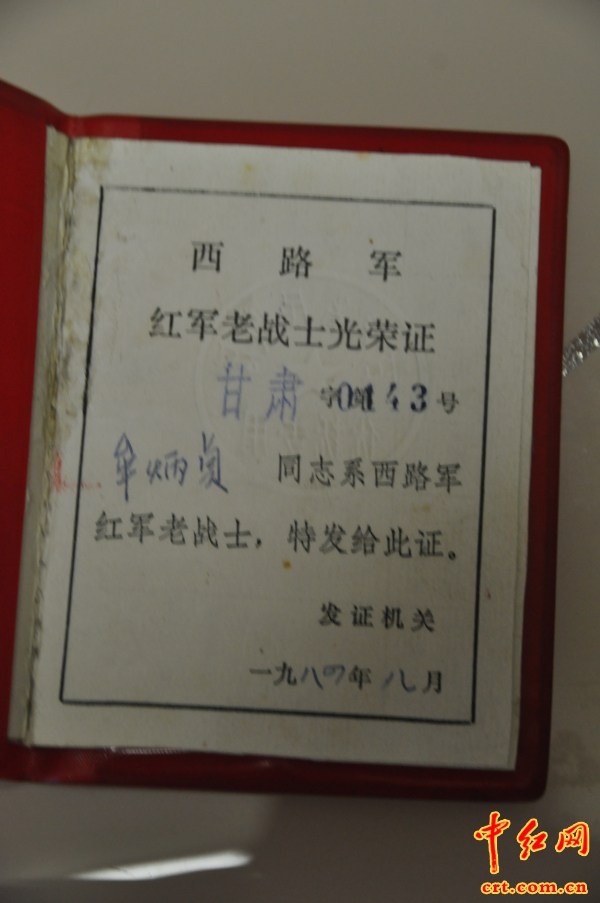 西路军
红军老战士光荣证
甘肃字第0143号
牟炳贞 同志系西路军
红军老战士，特发给此证。
发证机关
一九八四年八月
中红网
crt.com.cn